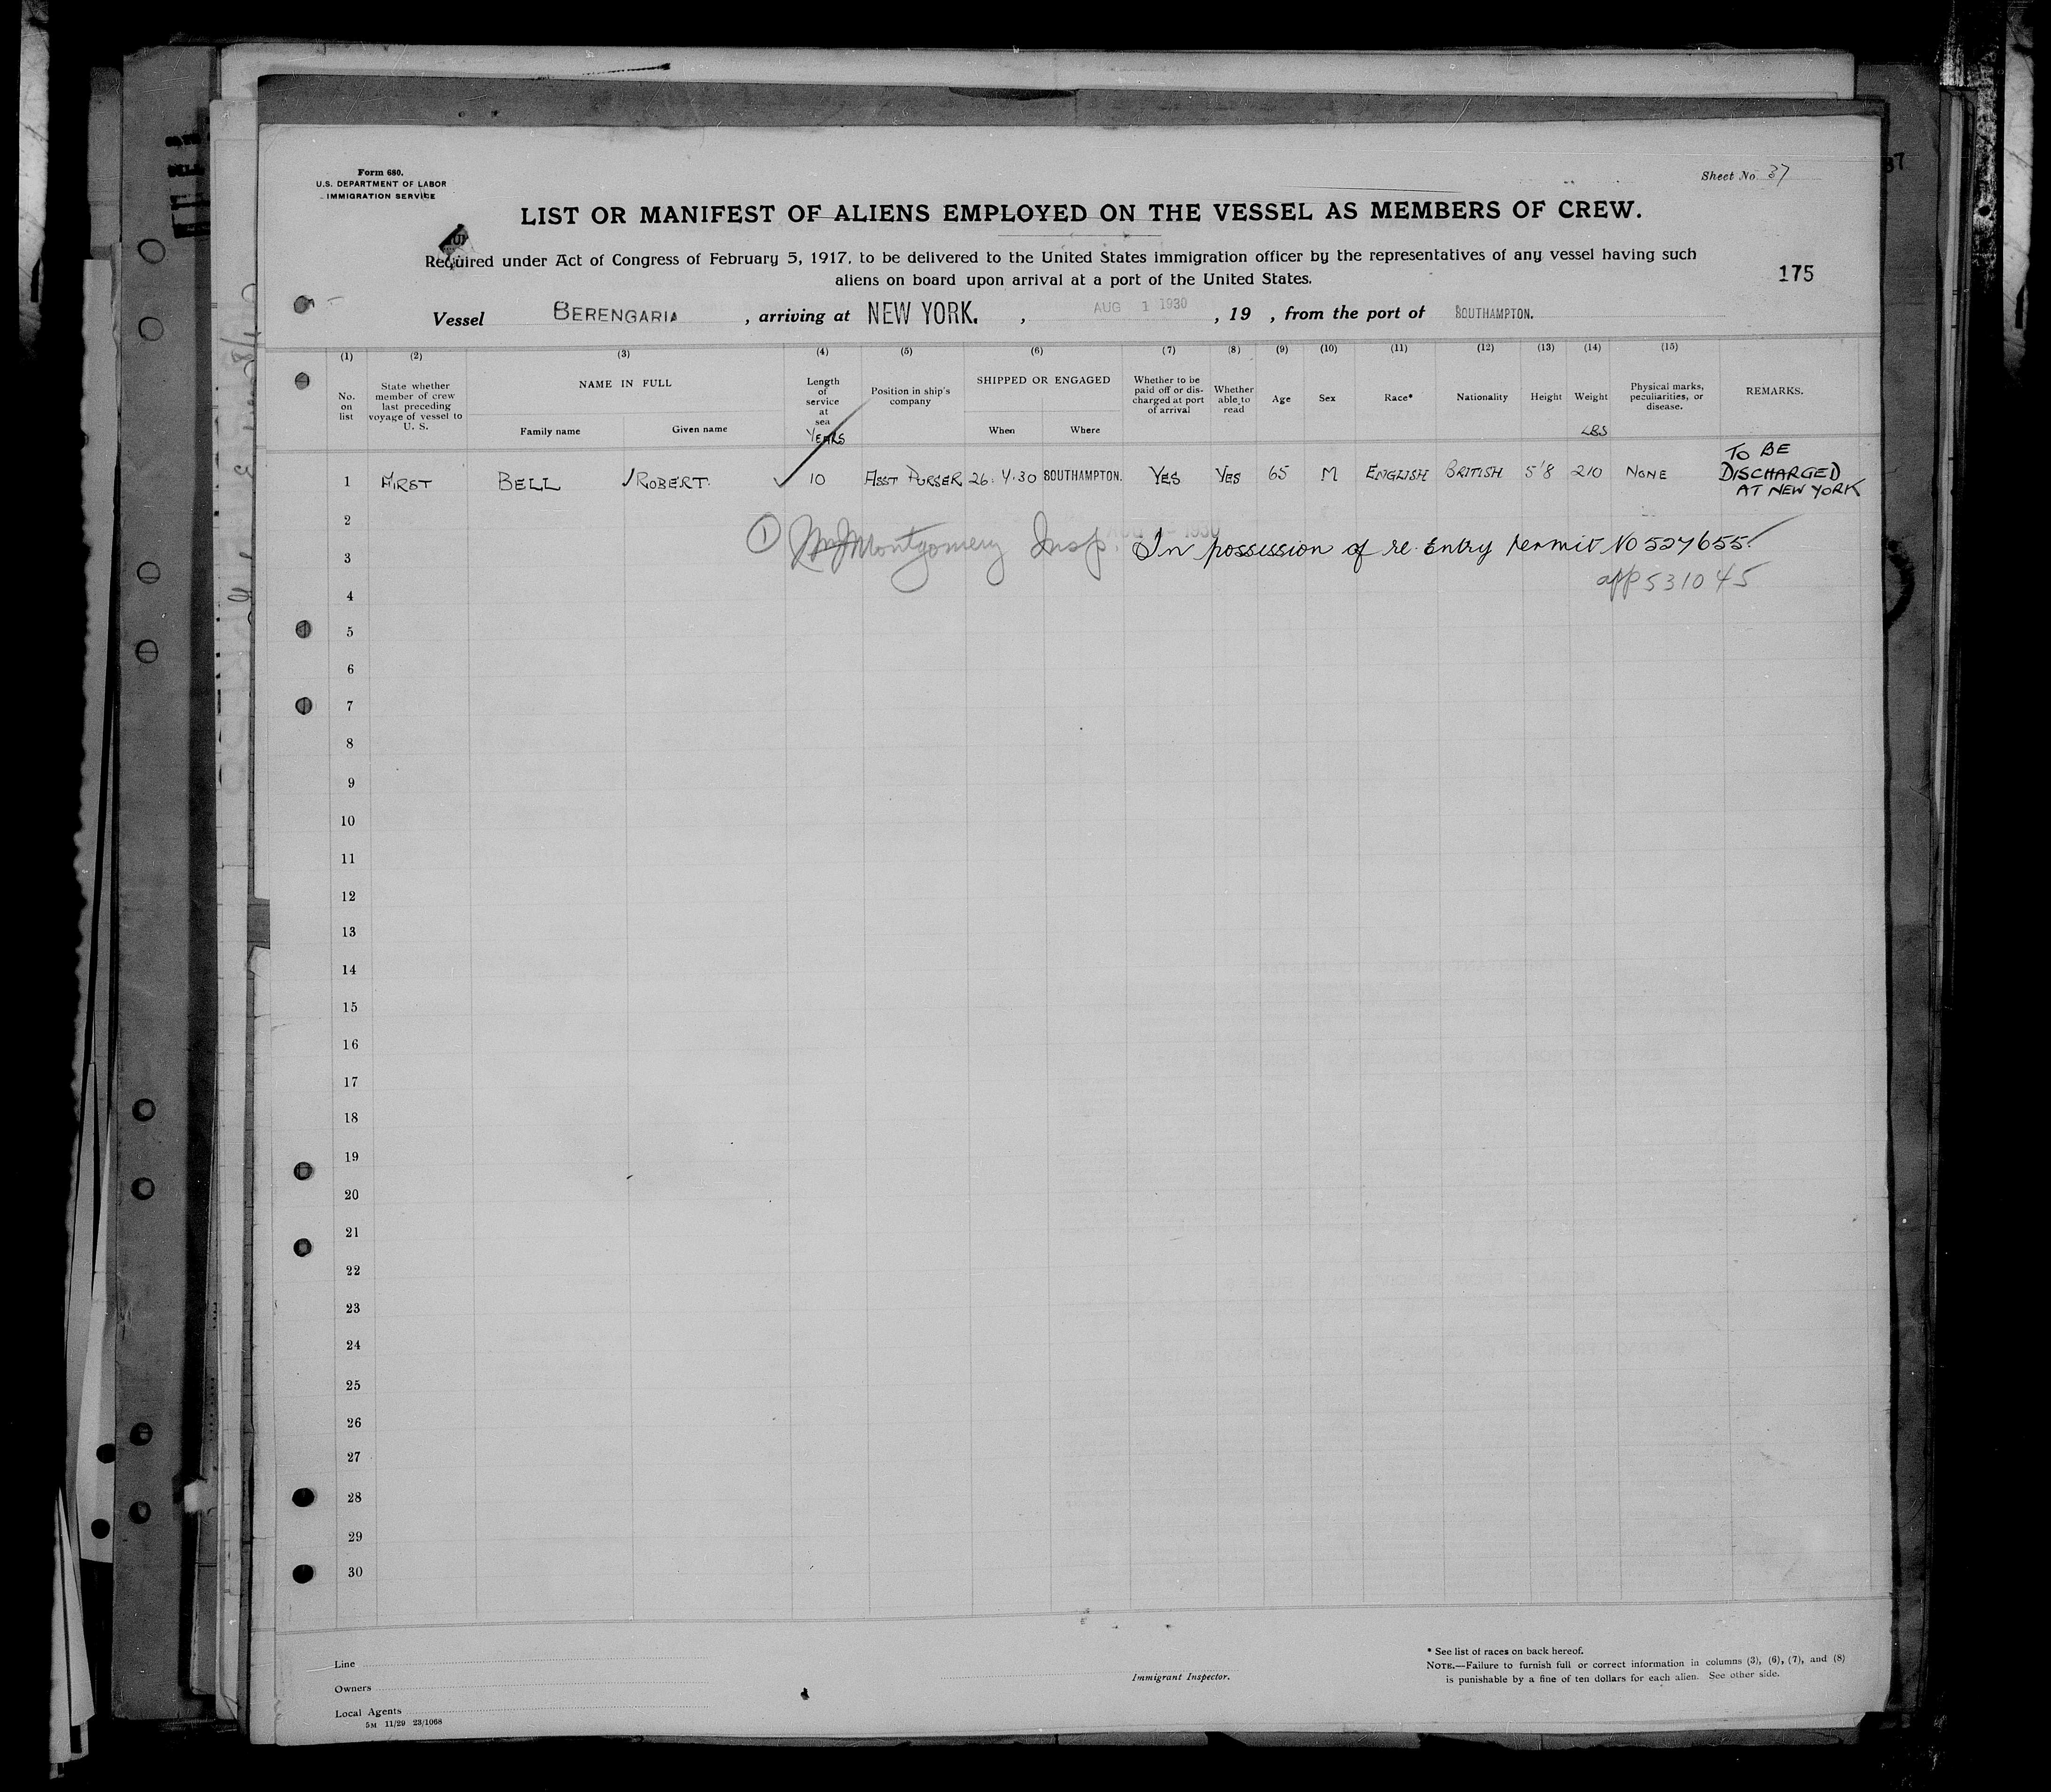 Form 680.
U.S. DEPARTMENT OF LABOR
IMMIGRATION SERVICE
Sheet No. 37
37
LIST OR MANIFEST OF ALIENS EMPLOYED ON THE VESSEL AS MEMBERS OF CREW.
Required under Act of Congress of February 5, 1917, to be delivered to the United States immigration officer by the representatives of any vessel having such
aliens on board upon arrival at a port of the United States.
175
Vessel BERENGARIA , arriving at NEW YORK. , AUG 1 1930 , 19 , from the port of SOUTHAMPTON.
(1) (2) (3) (4) (5) (6) (7) (8) (9) (10) (11) (12) (13) (14) (15)
No. on list State whether member of crew last preceding voyage of vessel to U. S. NAME IN FULL Family name Given name Length of service at sea YEARS Position in ship's company SHIPPED OR ENGAGED When Where Whether to be paid off or discharged at port of arrival Whether able to read Age Sex Race* Nationality Height Weight LBS Physical marks, peculiarities, or disease. REMARKS.
1 FIRST BELL ROBERT. 10 ASST PURSER 26.4.30 SOUTHAMPTON. YES YES 65 M ENGLISH BRITISH 5'8 210 NONE TO BE DISCHARGED AT NEW YORK
2
1 Montgomery Insp. In possession of re Entry permit No 527655.
3
app 531045
4
5
6
7
8
9
10
11
12
13
14
15
16
17
18
19
20
21
22
23
24
25
26
27
28
29
30
Line
Owners
Local Agents
5M 11/29 23/1068
Immigrant Inspector.
* See list of races on back hereof.
NOTE.—Failure to furnish full or correct information in columns (3), (6), (7), and (8)
is punishable by a fine of ten dollars for each alien. See other side.